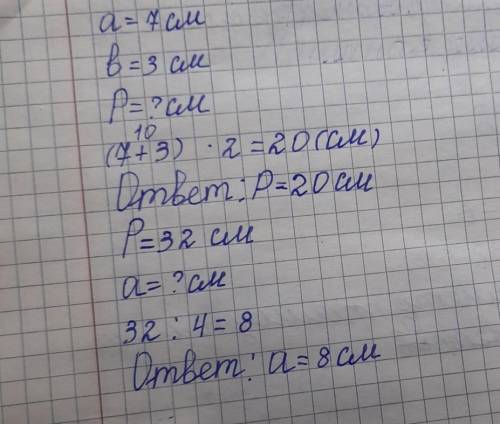 a = 7 см
в = 3 см
P = ? см
10
(7+3) · 2 = 20 (см)
Ответ: P = 20 см
P = 32 см
a = ? см
32 : 4 = 8
Ответ: a = 8 см